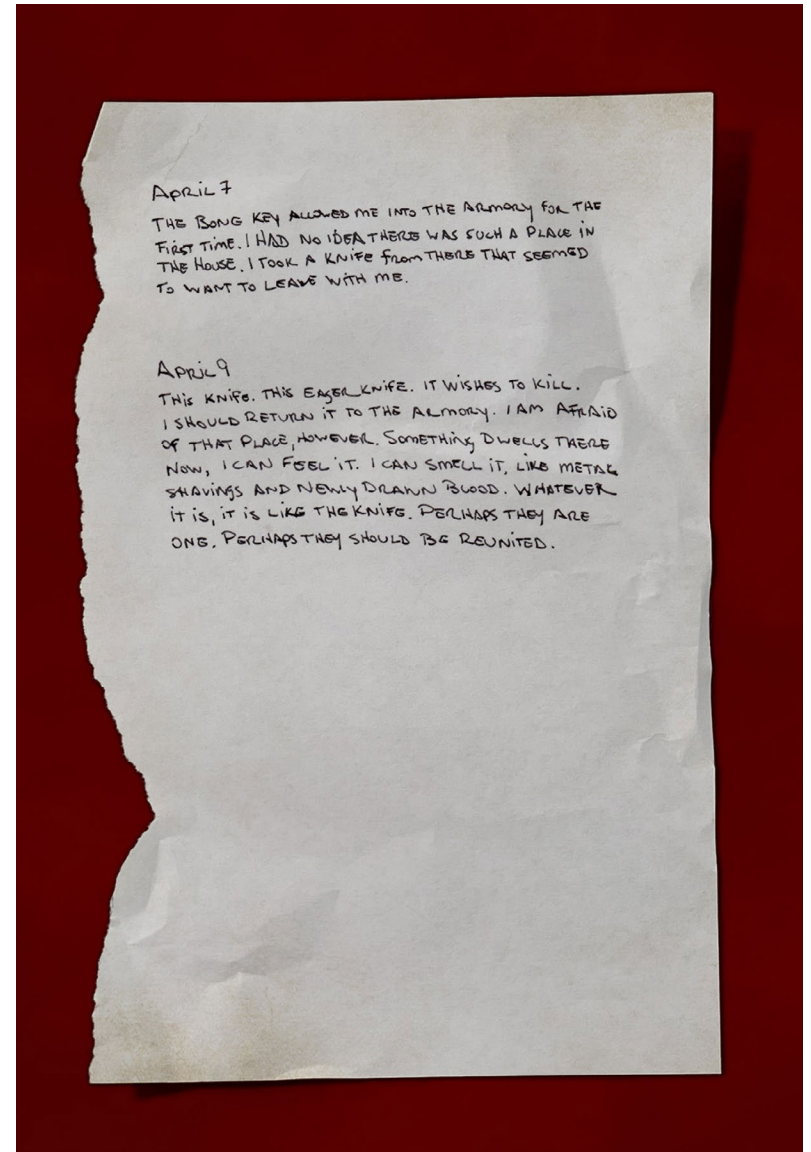 April 7
THE BONE KEY ALLOWED ME INTO THE ARMORY FOR THE
FIRST TIME. I HAD NO IDEA THERE WAS SUCH A PLACE IN
THE HOUSE. I TOOK A KNIFE FROM THERE THAT SEEMED
TO WANT TO LEAVE WITH ME.
April 9
THIS KNIFE. THIS EAGER KNIFE. IT WISHES TO KILL.
I SHOULD RETURN IT TO THE ARMORY. I AM AFRAID
OF THAT PLACE, HOWEVER. SOMETHING DWELLS THERE
NOW, I CAN FEEL IT. I CAN SMELL IT, LIKE METAL
SHAVINGS AND NEWLY DRAWN BLOOD. WHATEVER
IT IS, IT IS LIKE THE KNIFE. PERHAPS THEY ARE
ONE. PERHAPS THEY SHOULD BE REUNITED.